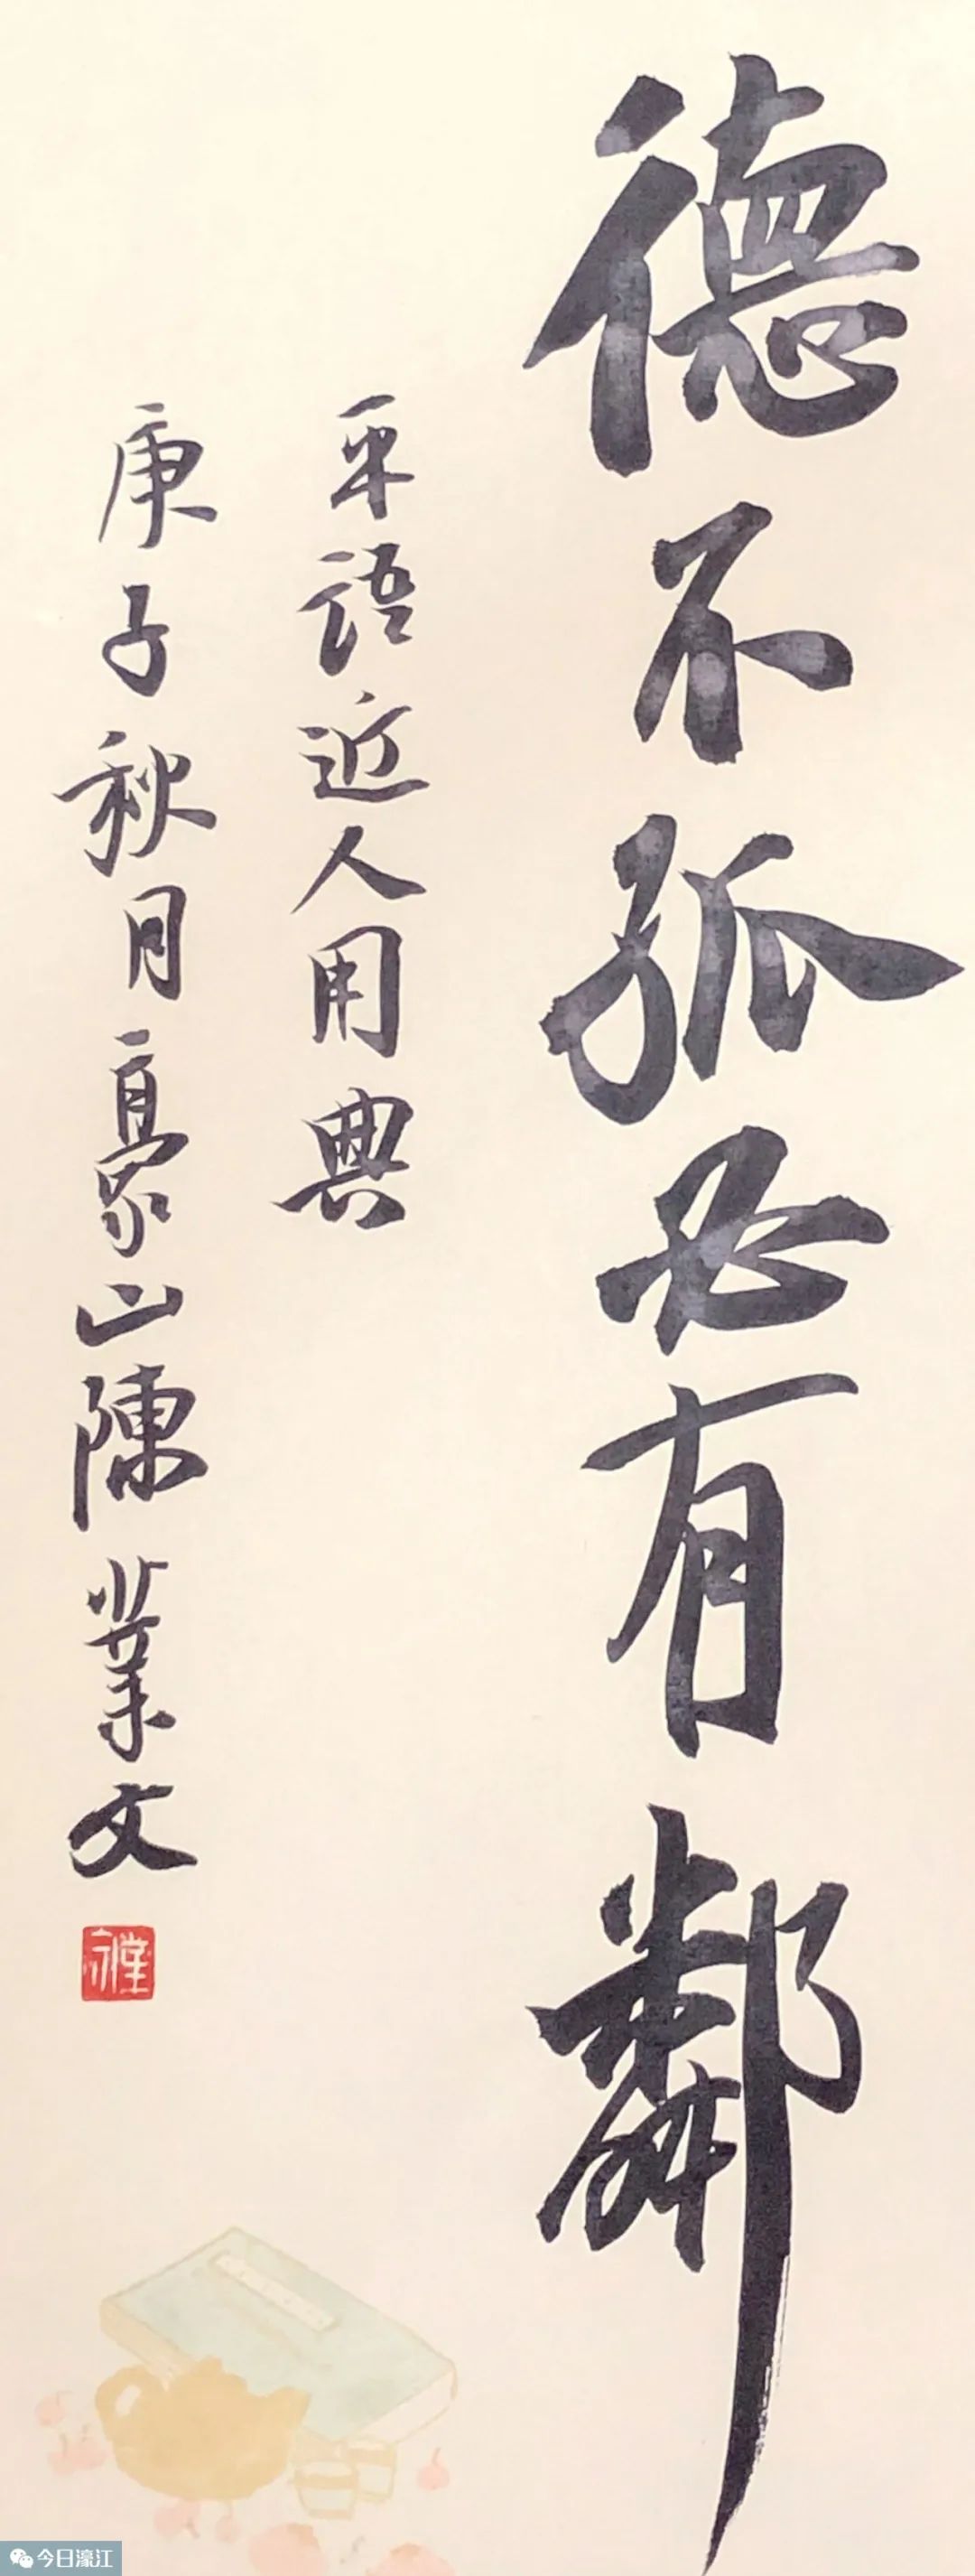 德不孤必有鄰
平語近人用典
庚子秋月豪山陳業文
今日濠江